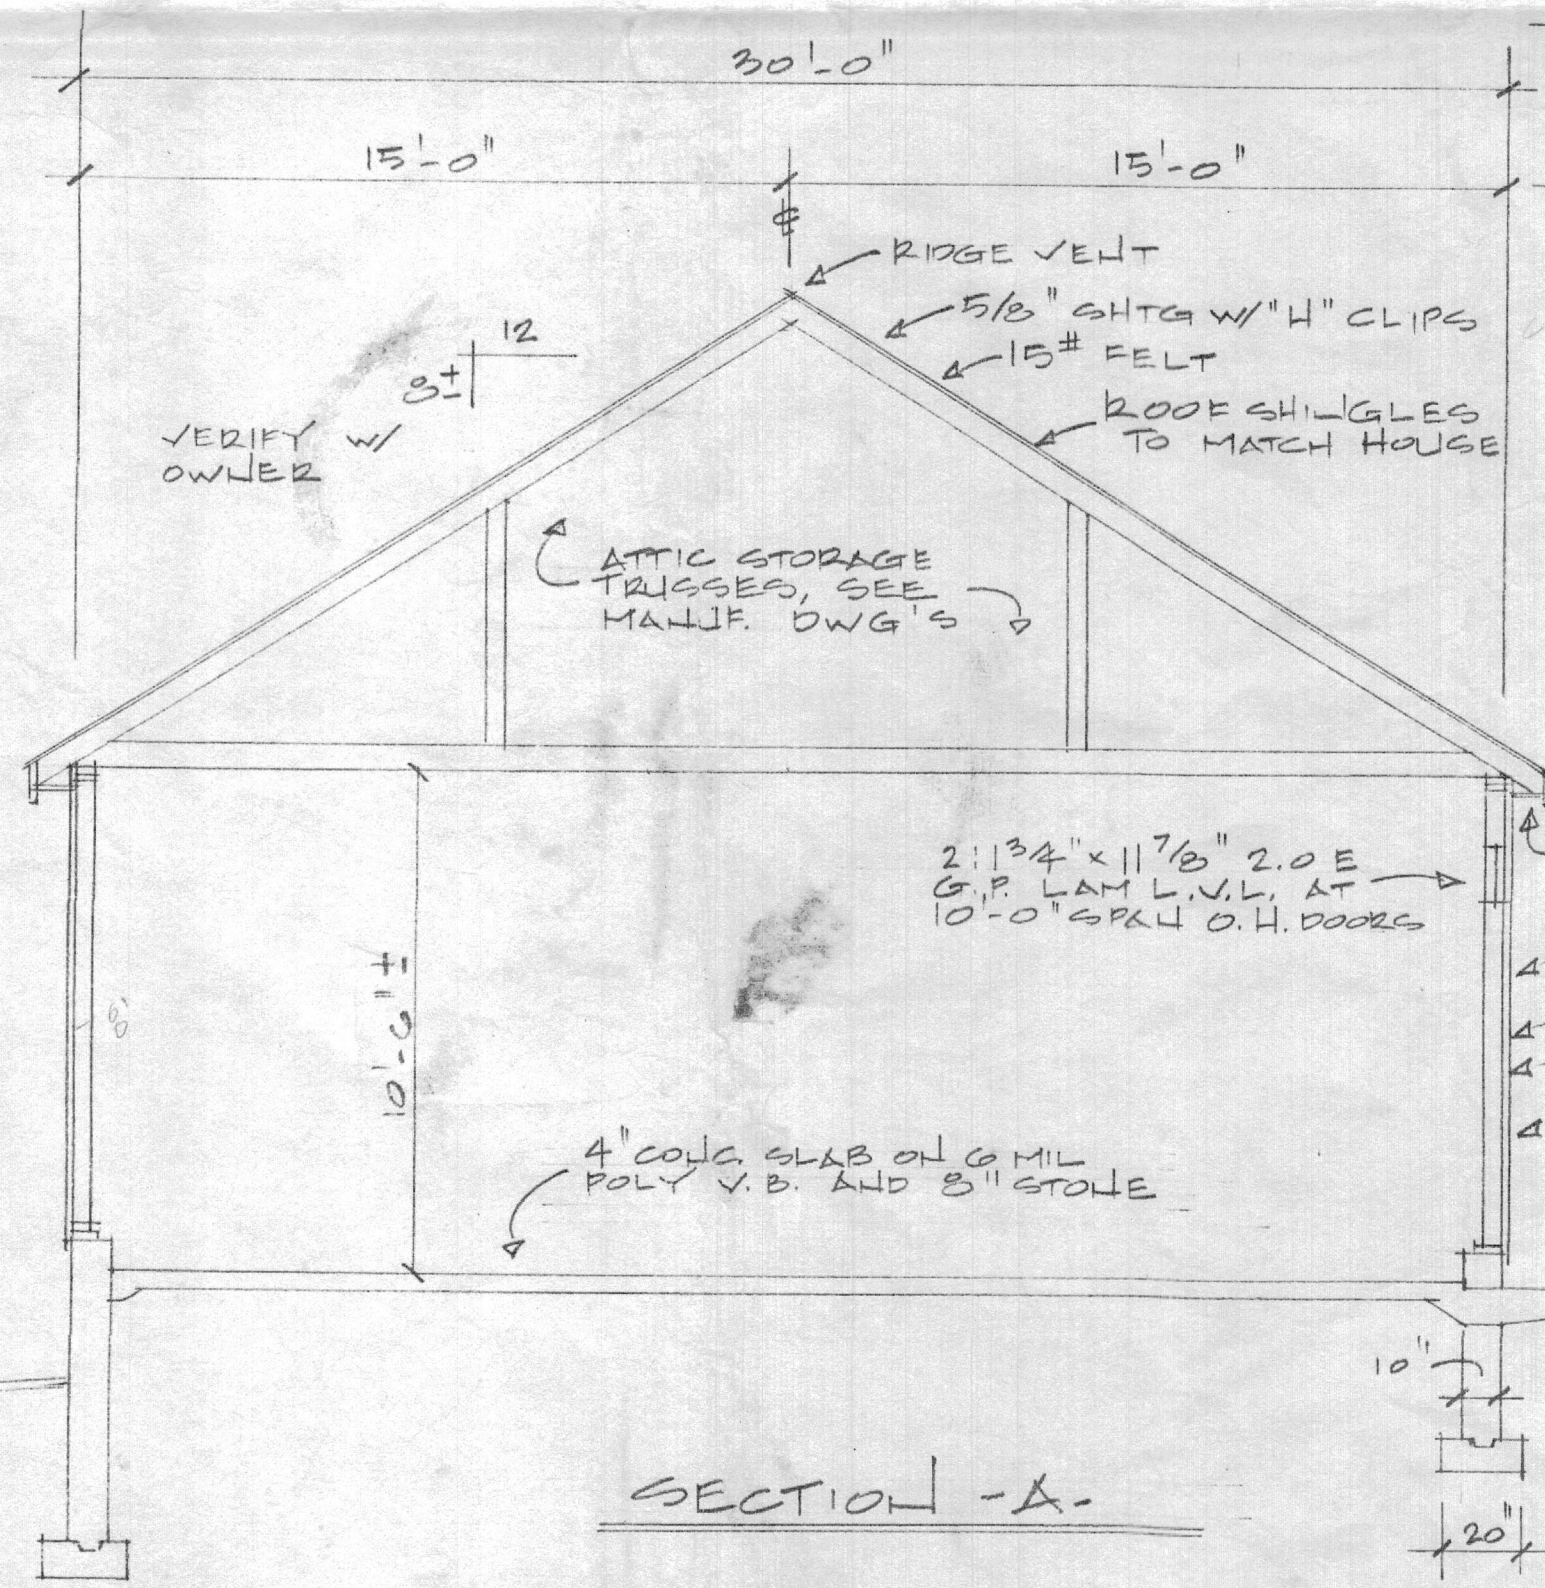 30'-0"
15'-0"
15'-0"
℄
RIDGE VENT
5/8" SHTG W/ "H" CLIPS
15# FELT
ROOF SHINGLES
TO MATCH HOUSE
12
8±
VERIFY W/
OWNER
ATTIC STORAGE
TRUSSES, SEE
MANUF. DWG'S
2:1 3/4" x 11 7/8" 2.0 E
G.P. LAM L.V.L. AT
10'-0" SPAN O.H. DOORS
10'-6" ±
4" CONC. SLAB ON 6 MIL
POLY V.B. AND 8" STONE
10"
SECTION -A-
20"